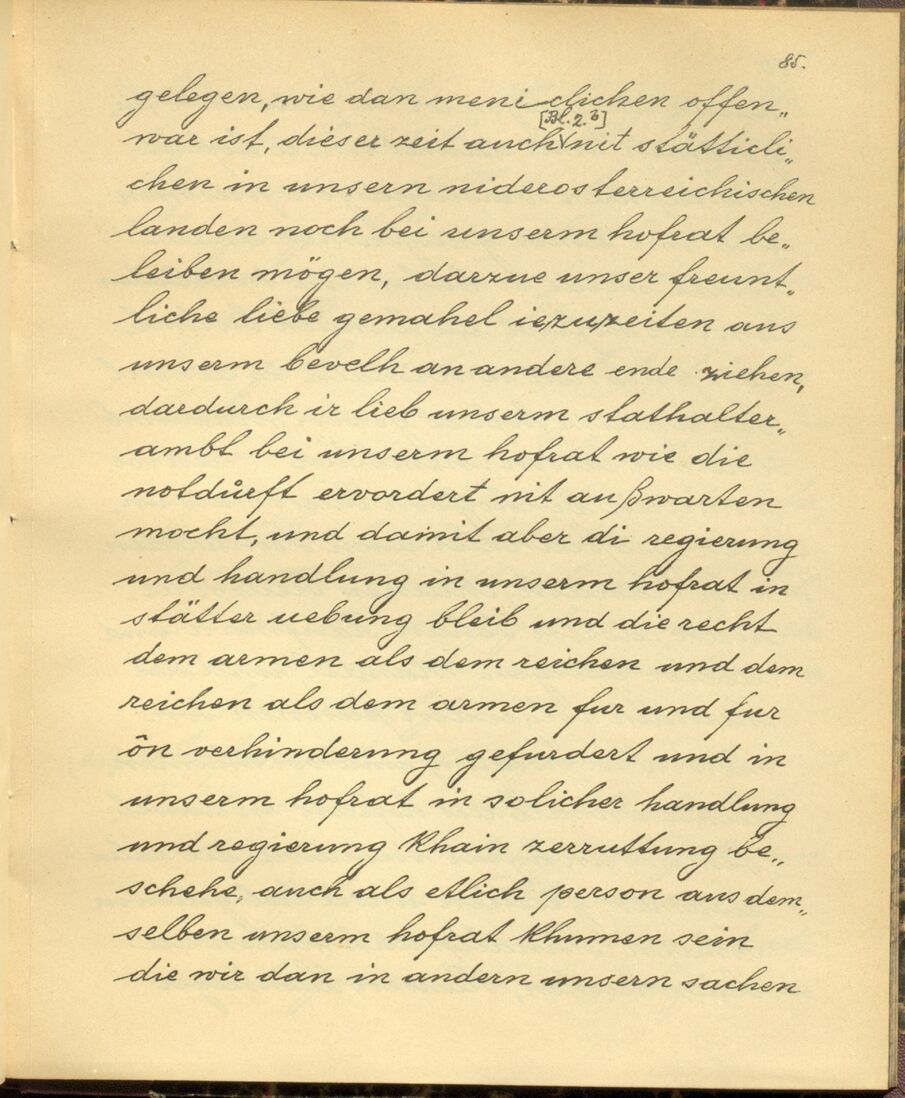 85.
gelegen, wie dan meniclichen offen„
[Bl. 2. b]
war ist, dieser zeit auch nit stätticli„
chen in unsern niderosterreichischen
landen noch bei unserm hofrat be„
leiben mögen, darzue unser freunt„
liche liebe gemahel iezuzeiten aus
unserm bevelh an andere ende ziehen,
dardurch ir lieb unserm stathalter„
ambt bei unserm hofrat wie die
notdůrft ervordert nit außwarten
mocht, und damit aber di regierung
und handlung in unserm hofrat in
stätter uebung bleib und die recht
dem armen als dem reichen und dem
reichen als dem armen fur und fur
ôn verhinderung gefurdert und in
unserm hofrat in solicher handlung
und regierung khain zerruttung be„
schehe, auch als etlich person aus dem„
selben unserm hofrat khumen sein
die wir dan in andern unsern sachen